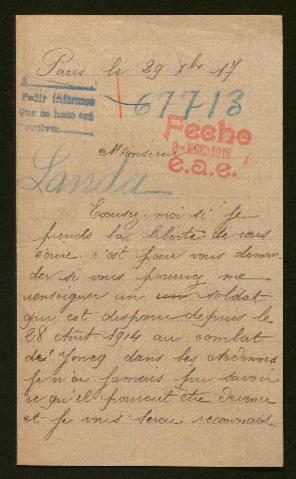 Paris le 29 Xbre 17
Pedir informes
Que se hace está
devolver
67713
Fecho
1918
e.a.e.
Monsieur
Landa
Excusez moi si je
prends la liberté de vous
écrire c'est pour vous deman-
der si vous pourriez me
renseigner un soldat
qui est disparu depuis le
28 Août 1914 au combat
de Joncq dans les Ardennes
Je n'ai jamais pu savoir
ce qu'il pouvait être devenu
et je vous serai reconnais-